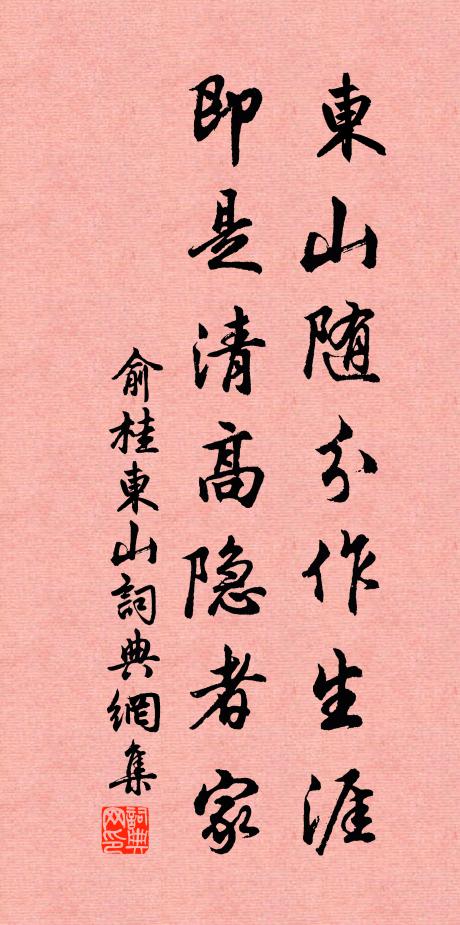 東山随分作生涯
即是清高隐者家
俞桂東山詞典網集
詞典
网印